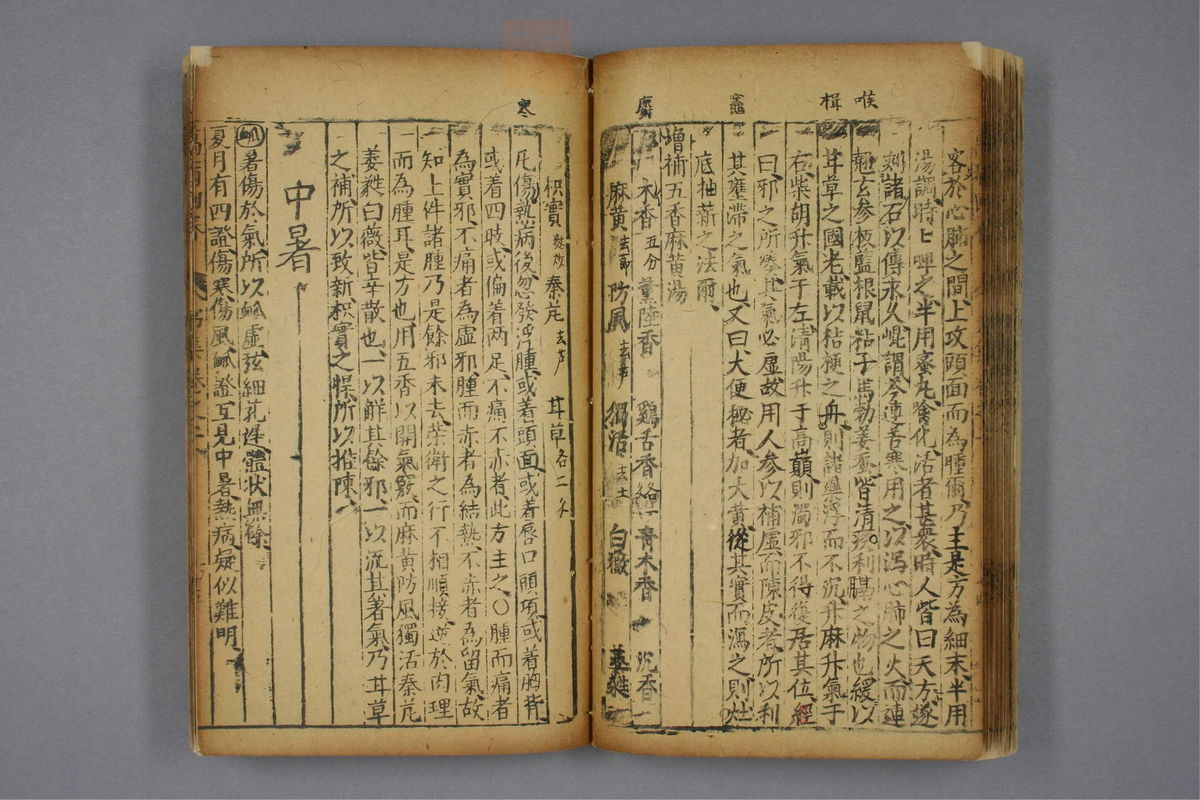 喉
楫
竈
麝
客於心肺之間上攻頭面而為腫爾乃主是方為細末半用
湯調時時呷之半用蜜丸噙化活者甚衆時人皆曰天方遂
刻諸石以傳永久崐謂芩連苦寒用之以瀉心肺之火而連
翹玄參板藍根鼠粘子馬勃姜蚕皆清疾利膈之物也緩以
甘草之國老載以秸梗之舟則諸藥浮而不沉升麻升氣于
右柴胡升氣于左清陽升于高巔則濁邪不得復居其位經
曰邪之所湊其氣必虛故用人参以補虛而陳皮者所以利
其壅滯之氣也又曰大便秘者加大黃從其實而瀉之則灶
底抽薪之法爾
增補五香麻黃湯
木香五分 薰陸香 鷄舌香 青木香 沉香
麻黃去節 防風去芦 獨活去土 白薇 萎蕤
寒
枳實 秦芃去芦 甘草各二
凡傷熱病後忽發浮腫或着頭面或着唇口頭項或着胸背
或着四肢或偏着两足不痛不赤者此方主之〇腫而痛者
為實邪不痛者為虛邪腫而赤者為結熱不赤者為留氣故
知上件諸腫乃是餘邪未去荣衛之行不相順接逆於肉理
而為腫耳是方也用五香以開氣竅而麻黃防風獨活秦芃
萎蕤白薇皆辛散也一以觧其餘邪一以流其著氣乃甘草
之補所以致新枳實之悍所以推陳
中暑
𧖴暑傷於氣所以𧖴虛弦細芤遲體状無餘
夏月有四證傷寒傷風𧖴證互見中暑熱病疑似難明